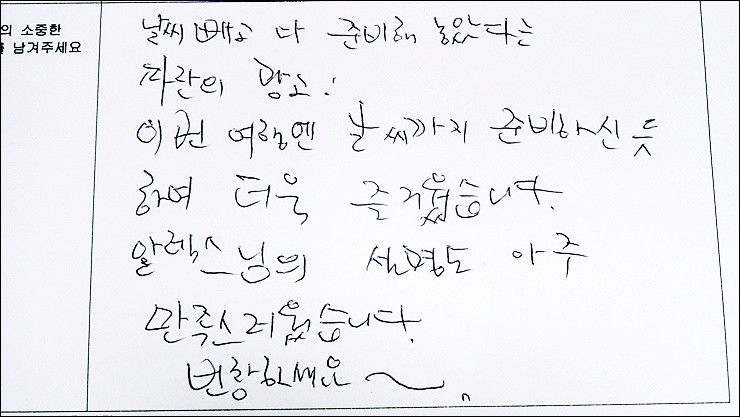 의 소중한
를 남겨주세요
날씨 빼고 다 준비해 놓았다는
파란의 광고!
이번 여행엔 날씨까지 준비하신 듯
하여 더욱 즐거웠습니다.
알렉스님의 설명도 아주
만족스러웠습니다.
번창하세요~